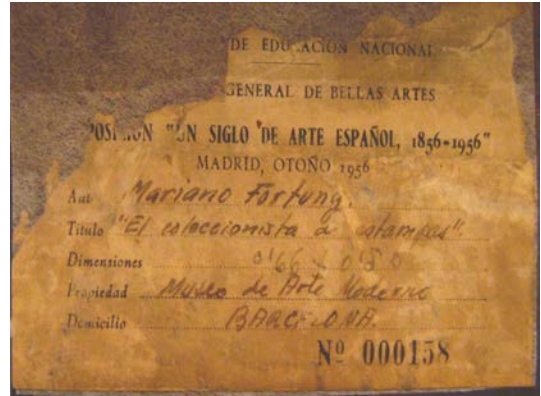 DE EDUCACIÓN NACIONAL
GENERAL DE BELLAS ARTES
POSICIÓN "UN SIGLO DE ARTE ESPAÑOL, 1856-1956"
MADRID, OTOÑO 1956
Aut Mariano Fortuny.
Título "El coleccionista de estampas".
Dimensiones 0'66 x 0'80
Propiedad Museo de Arte Moderno
Domicilio BARCELONA.
Nº 000158